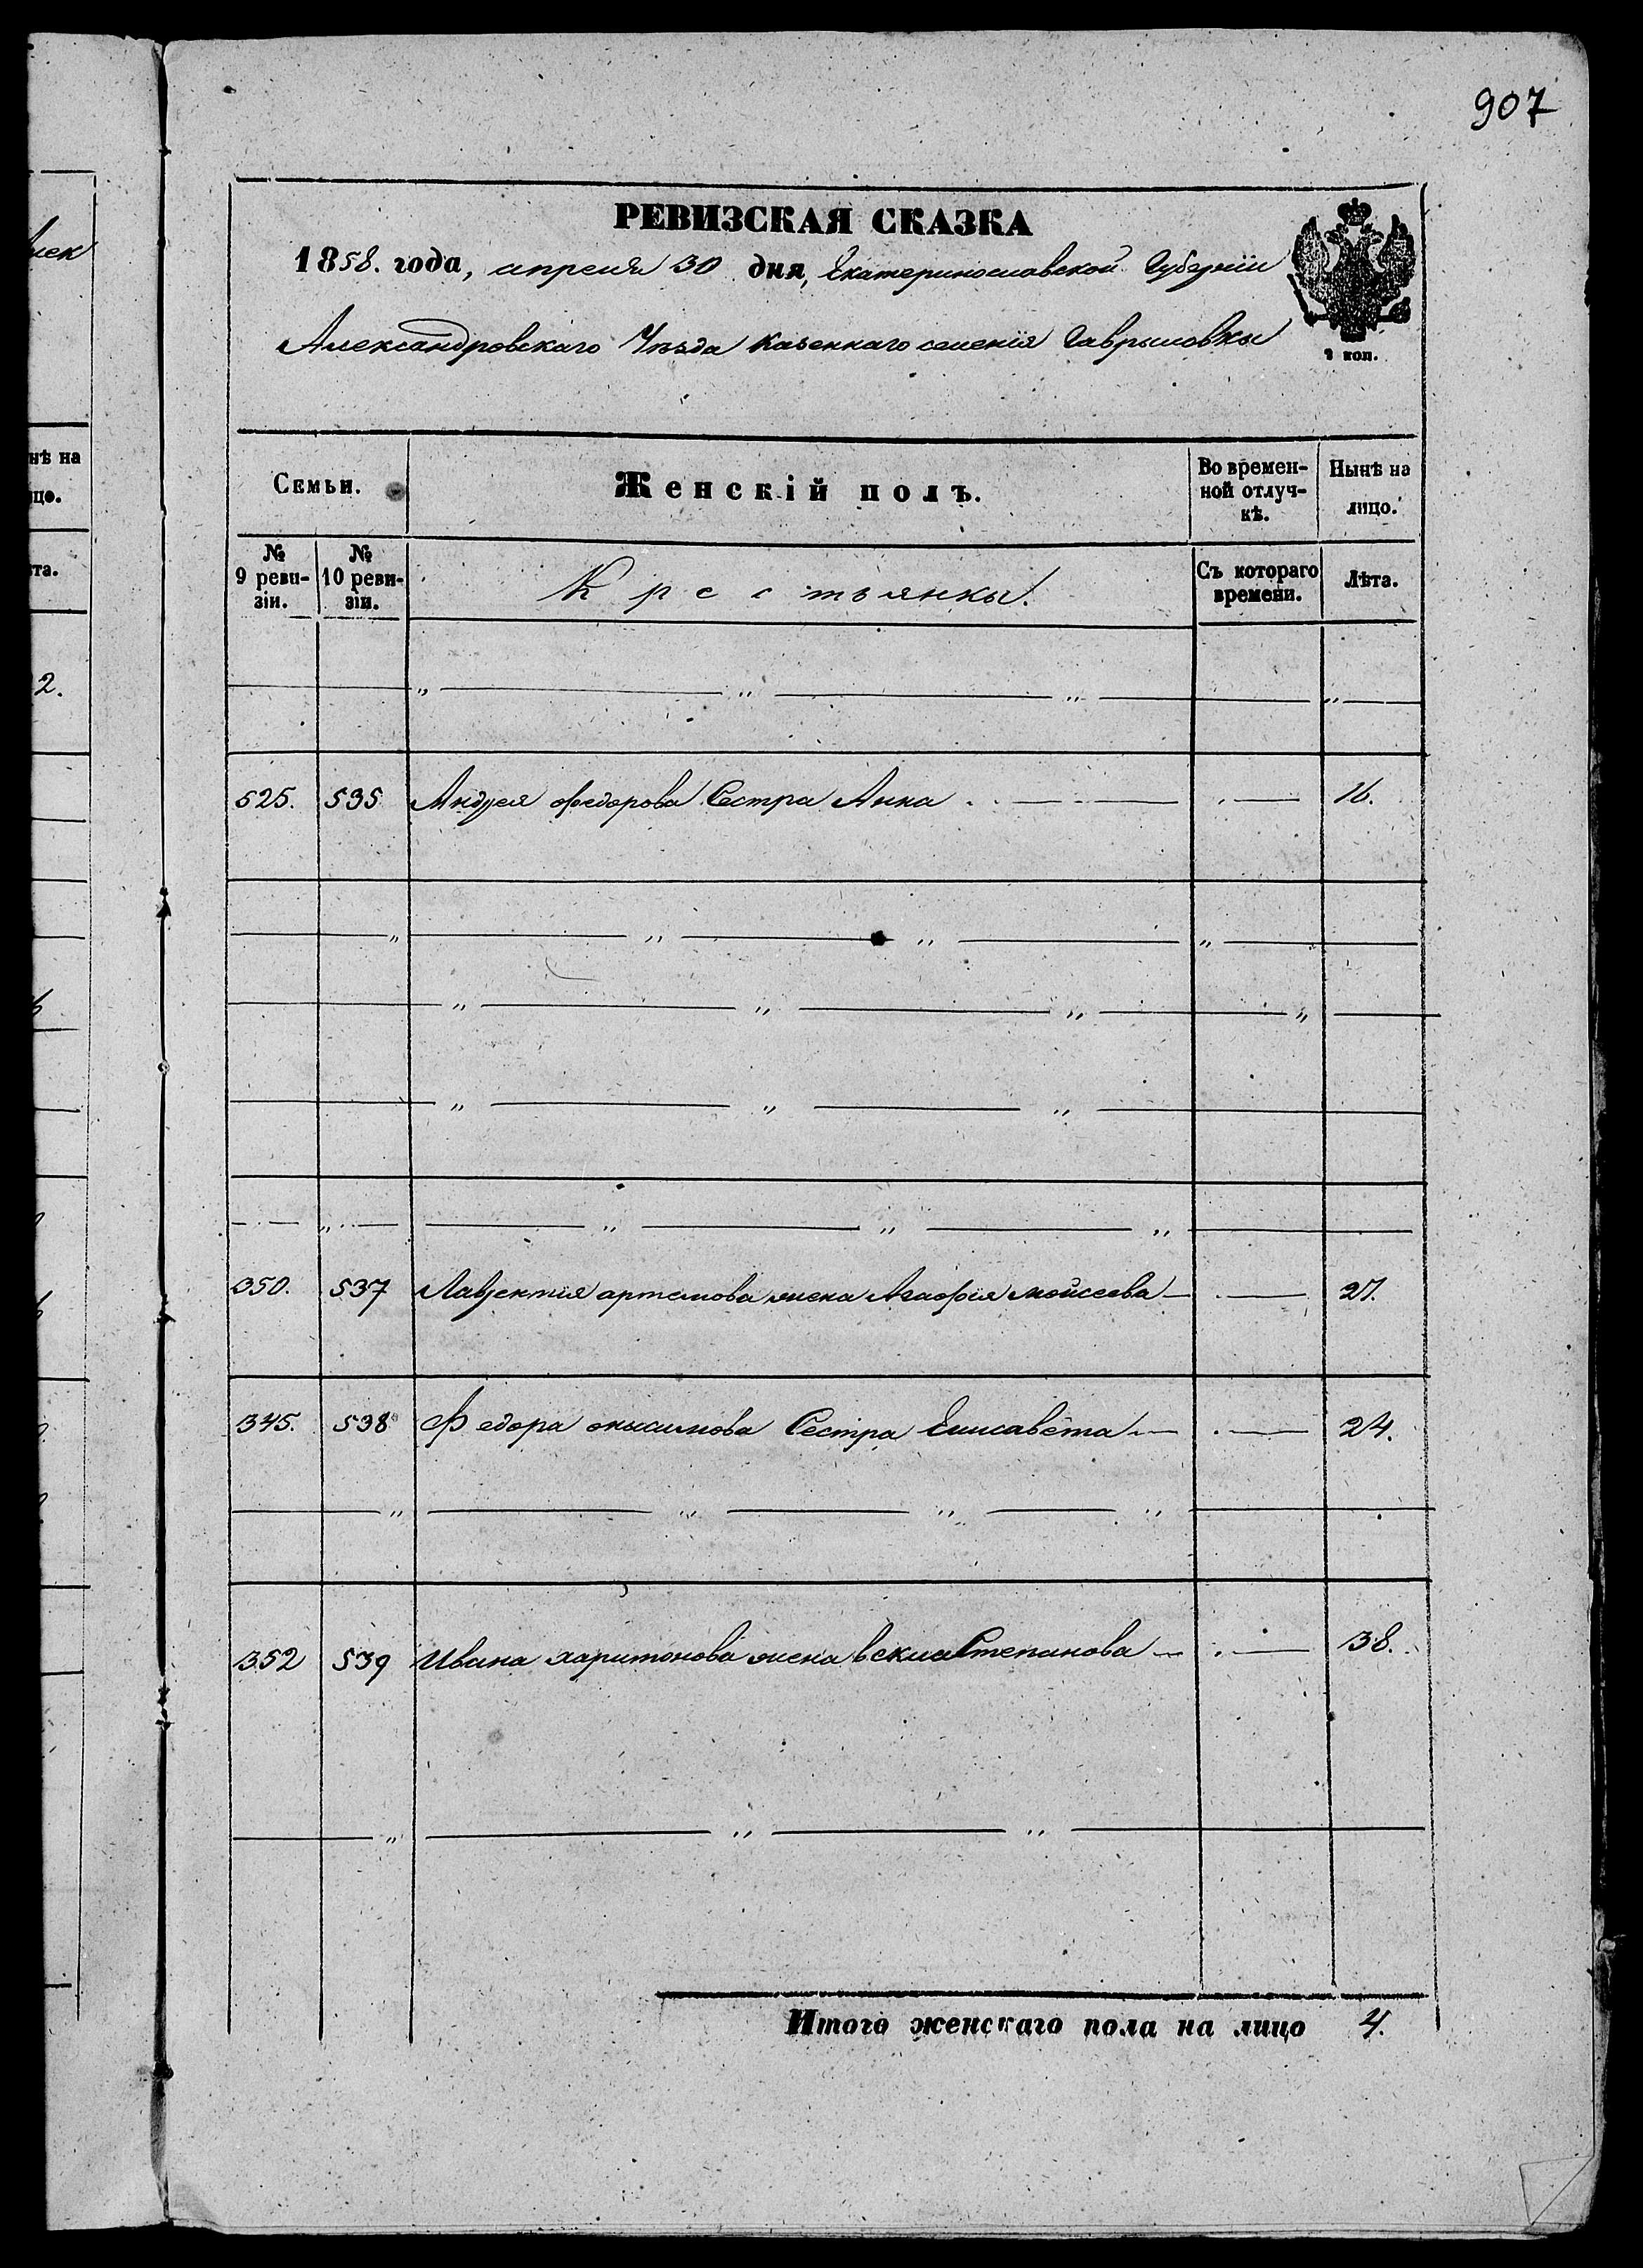 907
РЕВИЗСКАЯ СКАЗКА
1858. года, апреля 30 дня, Екатеринославской Губерніи
Александровскаго Уѣзда казеннаго селенія Гаврыловкы
2 коп.
Семьи. Женскій полъ. Во времен-ной отлуч-кѣ. Нынѣ на лицо.
№ 9 реви-зіи. № 10 реви-зіи. Крестьянкы. Съ котораго времени. Лѣта.
525. 535 Андрея федорова Сестра Анна 16.
350. 537 Лаврентія артемова жена Агафія мойсеева 27.
345. 538 Федора онысимова Сестра Елисавета 24.
352 539 Ивана харитонова жена векла Степанова 38.
Итого женскаго пола на лицо 4.
нѣ на
цо.
та.
2.